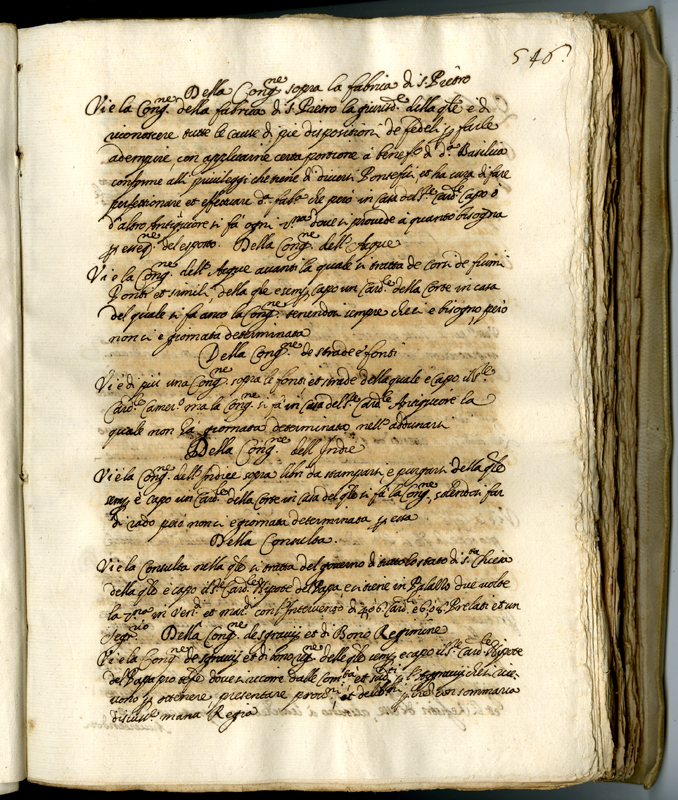 546.
Della Cong.ne sopra la fabrica di S. Pietro
Vi e la Cong.ne della fabrica di S. Pietro la giurisd.e della qle e di
riconoscere tutte le cause di pie dispositioni de fedeli p farle
adempire con applicarne certa portione à benef.o di d.a Basilica
conforme alli privileggi che tiene di diversi Pontefici, et ha cura di fare
perfettionare et effettuare d.a fabr.a che però in Casa del S.r Card.le Capo ò
d'altro Antiquiore si fà ogni dove si provede à quanto bisogna
p esseq.ne del esposto. Della Cong.ne dell'Acque
Vi e la Cong.ne dell'Acque avanti la quale si tratta de corsi de fiumi
Ponti et simili, della qle e semp. capo un Card.le della Corte in casa
del quale si fà anco la Cong.ne tenendosi sempre che vi e bisogno, però
non ci e giornata determinata
Della Cong.ne de strade e fonti
Vi e di più una Cong.ne sopra le fonti et strade della quale e capo il S.r
Card.le Camer.o ma la Cong.ne si fà in Casa del S.r Card.le Antiquiore la
quale non hà giornata determinata nell'addunarsi
Della Cong.ne dell'Indice
Vi e la Cong.ne dell'Indice sopra libri da stamparsi, e purgarsi della qle
semp. è capo un Card.le della Corte in casa del qle si fà la Cong.ne, solendosi far
di rado però non ci e giornata determinata p essa
Della Consulta.
Vi e la Consulta nella qle si tratta del governo di tutto lo stato di S.ta Chiesa
della qle è capo il S.r Card.le Nipote del Papa, e si tiene in Palazzo due volte
la in Ven.di et mar.di con l'Intervento di 4 o 6 Card.li e 6, o 8 Prelati et un
Segr.rio Della Cong.ne de sgravij et di Bono Regimine
Vi e la Cong.ne de sgravij et di bono, della qle semp. e capo il S.r Card.le Nipote
del Papa dove si ricorre dalle et p l'Aggravij che rice-
vono p ottenere, presentare et con sommaria
mana Regia